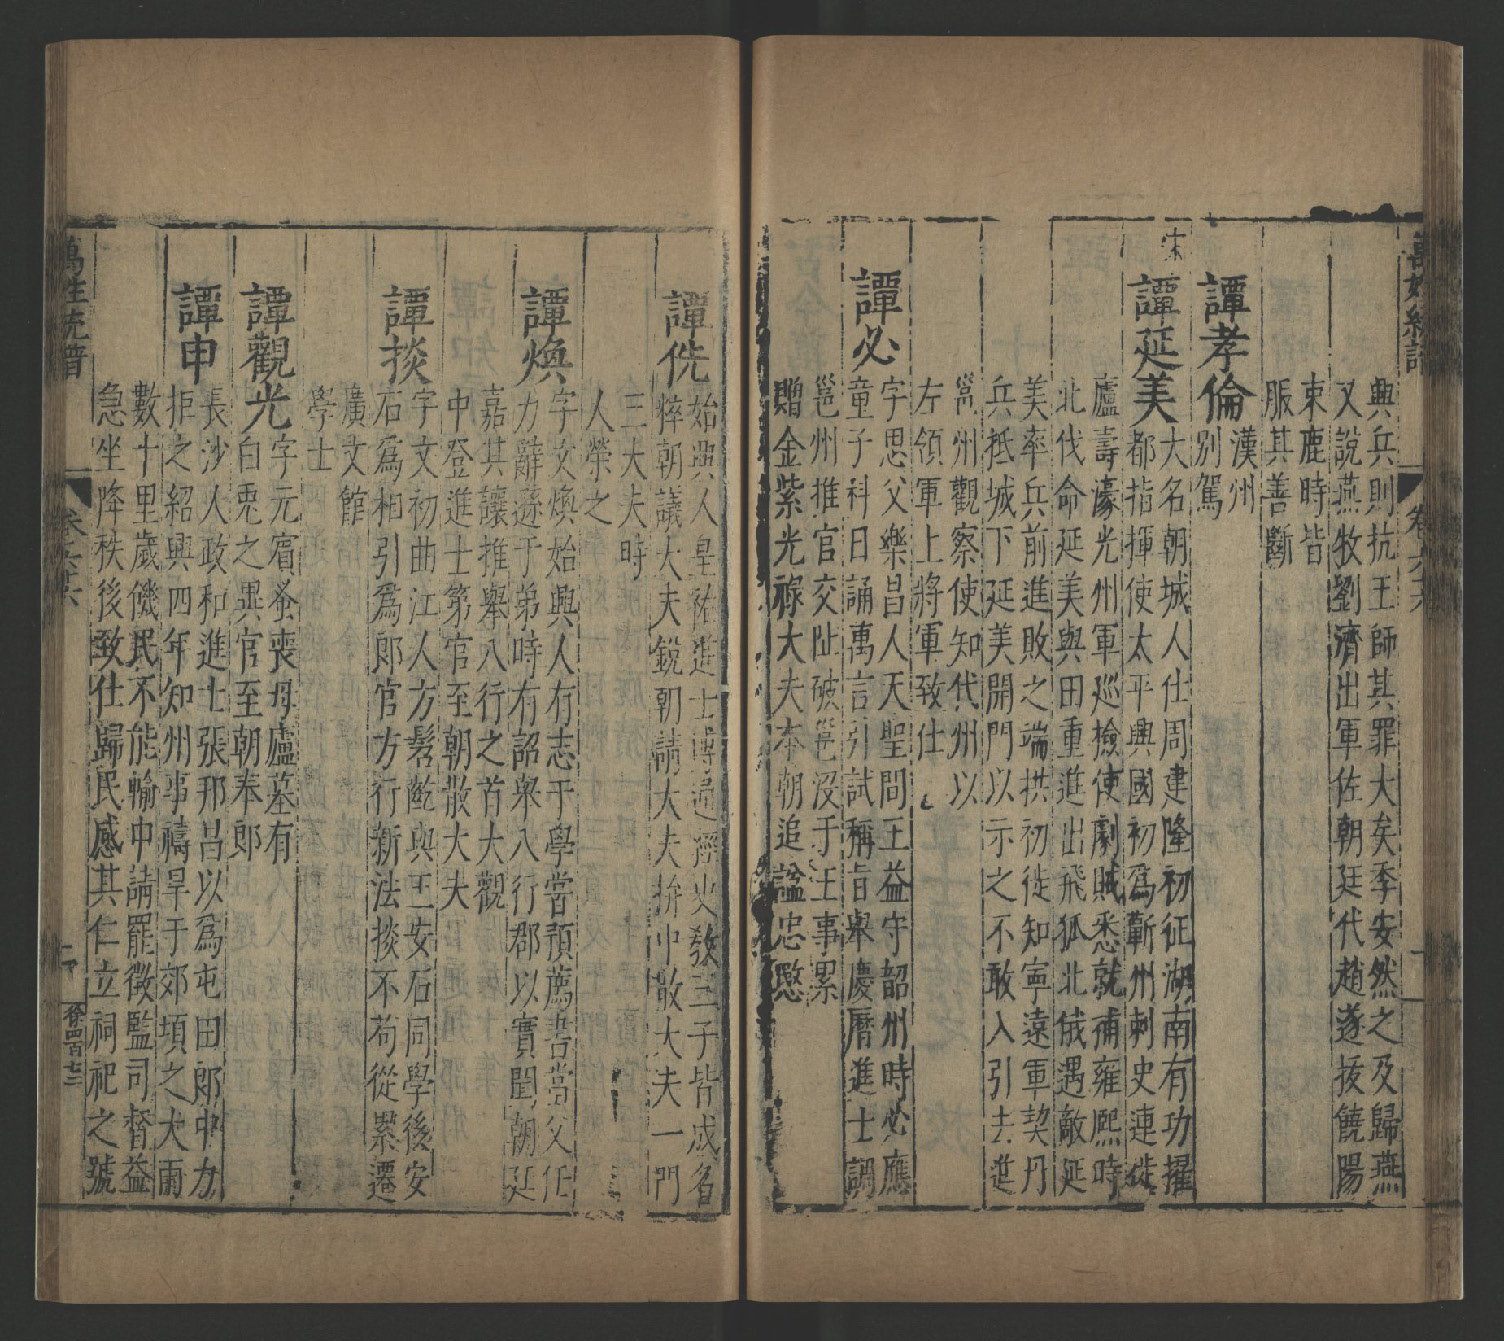 興兵則抗王師其罪大矣季安然之及歸燕
又說燕牧劉濟出軍佐朝廷代趙遂抜饒陽
束鹿時皆
服其善斷
譚孝倫
漢州
別駕
宋
譚延美
大名朝城人仕周建隆初征湖南有功擢
都指揮使太平興國初爲蘄州刺史連徙
廬壽濠光州軍巡檢使劇賊悉就捕雍熙時
北伐命延美與田重進出飛狐北俄遇敵延
美率兵前進敗之端拱初徙知寧遠軍契丹
兵抵城下延美開門以示之不敢入引去進
邕州觀察使知代州以
左領軍上將軍致仕
譚必
字思父樂昌人天聖間王益守韶州時必應
童子科日誦萬言引試稱旨舉慶曆進士調
邕州推官交阯破邕沒于王事累
贈金紫光祿大夫本朝追諡忠愍
譚侁
始興人皇祐進士博通經史教三子皆成名
猝朝議大夫銳朝請大夫掞中散大夫一門
三大夫時
人榮之
譚煥
字文煥始興人有志于學嘗預薦書當父任
力辭遜于弟時有詔舉八行郡以實聞朝廷
嘉其讓推舉八行之首大觀
中登進士第官至朝散大夫
譚掞
字文初曲江人方髫齔與王安石同學後安
石爲相引爲郎官方行新法掞不苟從累遷
廣文館
學士
譚觀光
字元賓蚤喪母廬墓有
白兎之異官至朝奉郎
譚申
長沙人政和進士張邦昌以爲屯田郎中力
拒之紹興四年知州事禱旱于郊頃之大雨
數十里歲饑民不能輸中請罷徴監司督益
急坐降秩後致仕歸民感其仁立祠祀之號
萬姓統譜
卷六十六
二